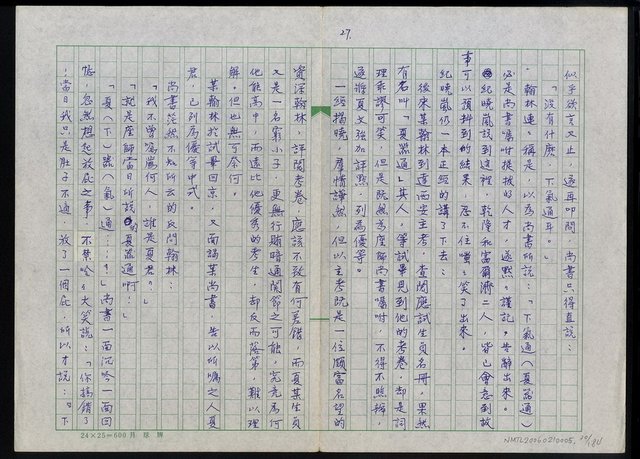 27
似乎欲言又止,遂再叩問,尚書只得直說:
「沒有什麼,下氣通耳。」
翰林連『稱是,以為尚書所說:「下氣通(夏器通)
必是尚書囑咐提拔的人才,遂默『謹記。告辭出來。
紀曉嵐說到這裡,乾隆和富爾濟二人,皆已會意到故
事可以預料到的結果,忍不住噗『笑了出來。
紀曉嵐仍一本正經的講了下去:
後來某翰林到
有名叫「夏器通」其人,等試畢見到他的考卷,却是詞
理乖謬可笑,但是既然為座師尚書囑咐,不得不照辦,
遂將夏文強加評點,列為優等。
一經揭曉,羣情譁然,但以主考既是一位頗富名望的
資深翰林,評閱考卷,應該不致有何差錯,而夏某生員
又是一名窮小子,更無行賄暗通關節之可能,究竟為何
他能高中,而遠比他優秀的考生,却反而落第,難以理
解。但也無可奈何。
某翰林於試畢回京,又面謁某尚書,告以所囑之人夏
君,已列為優等中式
尚書茫然不知所云的反問翰林:
「我不曾囑崴何人,誰是夏君?」
「就是座師當日所說的夏器通啊!」
「夏(下)器(氣)通……?」尚書一面沉吟,一面回
憶,忽然想起放屁之事,不禁哈『大笑說:「你搞錯了
,當日我只是肚子不適,放了一個屁,所以才說:『下
24×25=600 月球牌
NMTL20060210005, 28/184